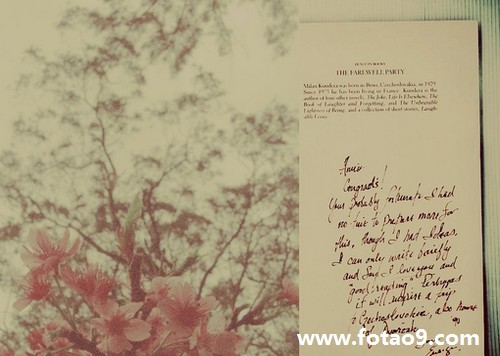 PENGUIN BOOKS
THE FAREWELL PARTY
Milan Kundera was born in Brno, Czechoslovakia, in 1929.
Since 1975 he has been living in France. Kundera is the
author of four other novels: The Joke, Life Is Elsewhere, The
Book of Laughter and Forgetting, and The Unbearable
Lightness of Being, and a collection of short stories, Laugh-
able Loves.
Congrats!
Your probably fortunate I had
no time to prepare more for
this, though I had ideas.
I can only write briefly
and say I love you and
"good reading". Perhaps
it will inspire a trip
Czechoslovakia, also
www.fotao9.com